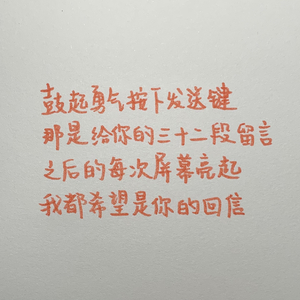 鼓起勇气按下发送键
那是给你的三十二段留言
之后的每次屏幕亮起
我都希望是你的回信